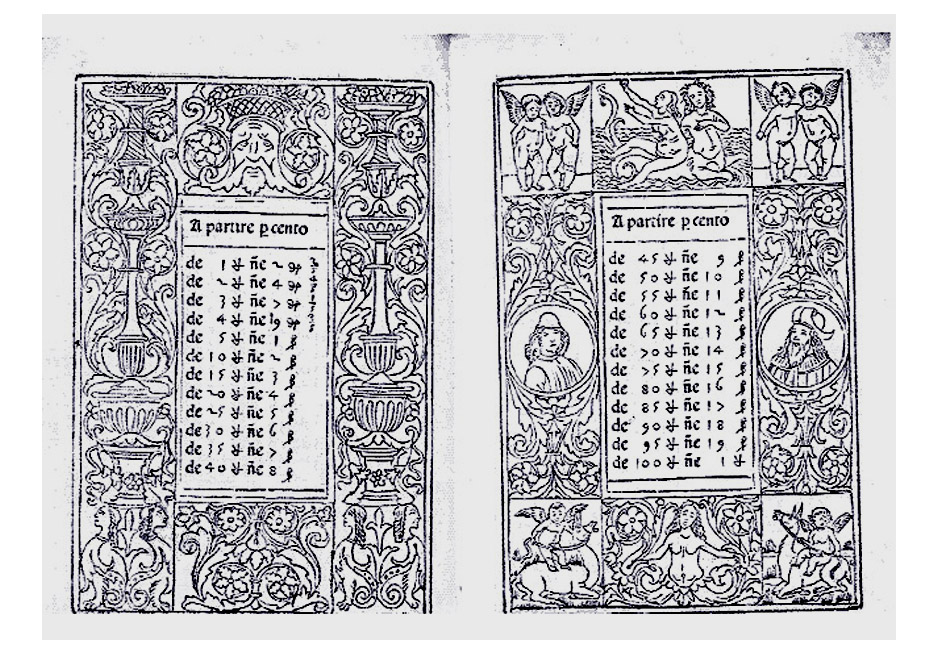 A partire ꝑ cento
de 1 ℔ ñe 2 ₰ 2/5
de 2 ℔ ñe 4 ₰ 4/5
de 3 ℔ ñe 7 ₰ 1/5
de 4 ℔ ñe 9 ₰ 3/5
de 5 ℔ ñe 1 ß
de 10 ℔ ñe 2 ß
de 15 ℔ ñe 3 ß
de 20 ℔ ñe 4 ß
de 25 ℔ ñe 5 ß
de 30 ℔ ñe 6 ß
de 35 ℔ ñe 7 ß
de 40 ℔ ñe 8 ß
A partire ꝑ cento
de 45 ℔ ñe 9 ß
de 50 ℔ ñe 10 ß
de 55 ℔ ñe 11 ß
de 60 ℔ ñe 12 ß
de 65 ℔ ñe 13 ß
de 70 ℔ ñe 14 ß
de 75 ℔ ñe 15 ß
de 80 ℔ ñe 16 ß
de 85 ℔ ñe 17 ß
de 90 ℔ ñe 18 ß
de 95 ℔ ñe 19 ß
de 100 ℔ ñe 1 ℔